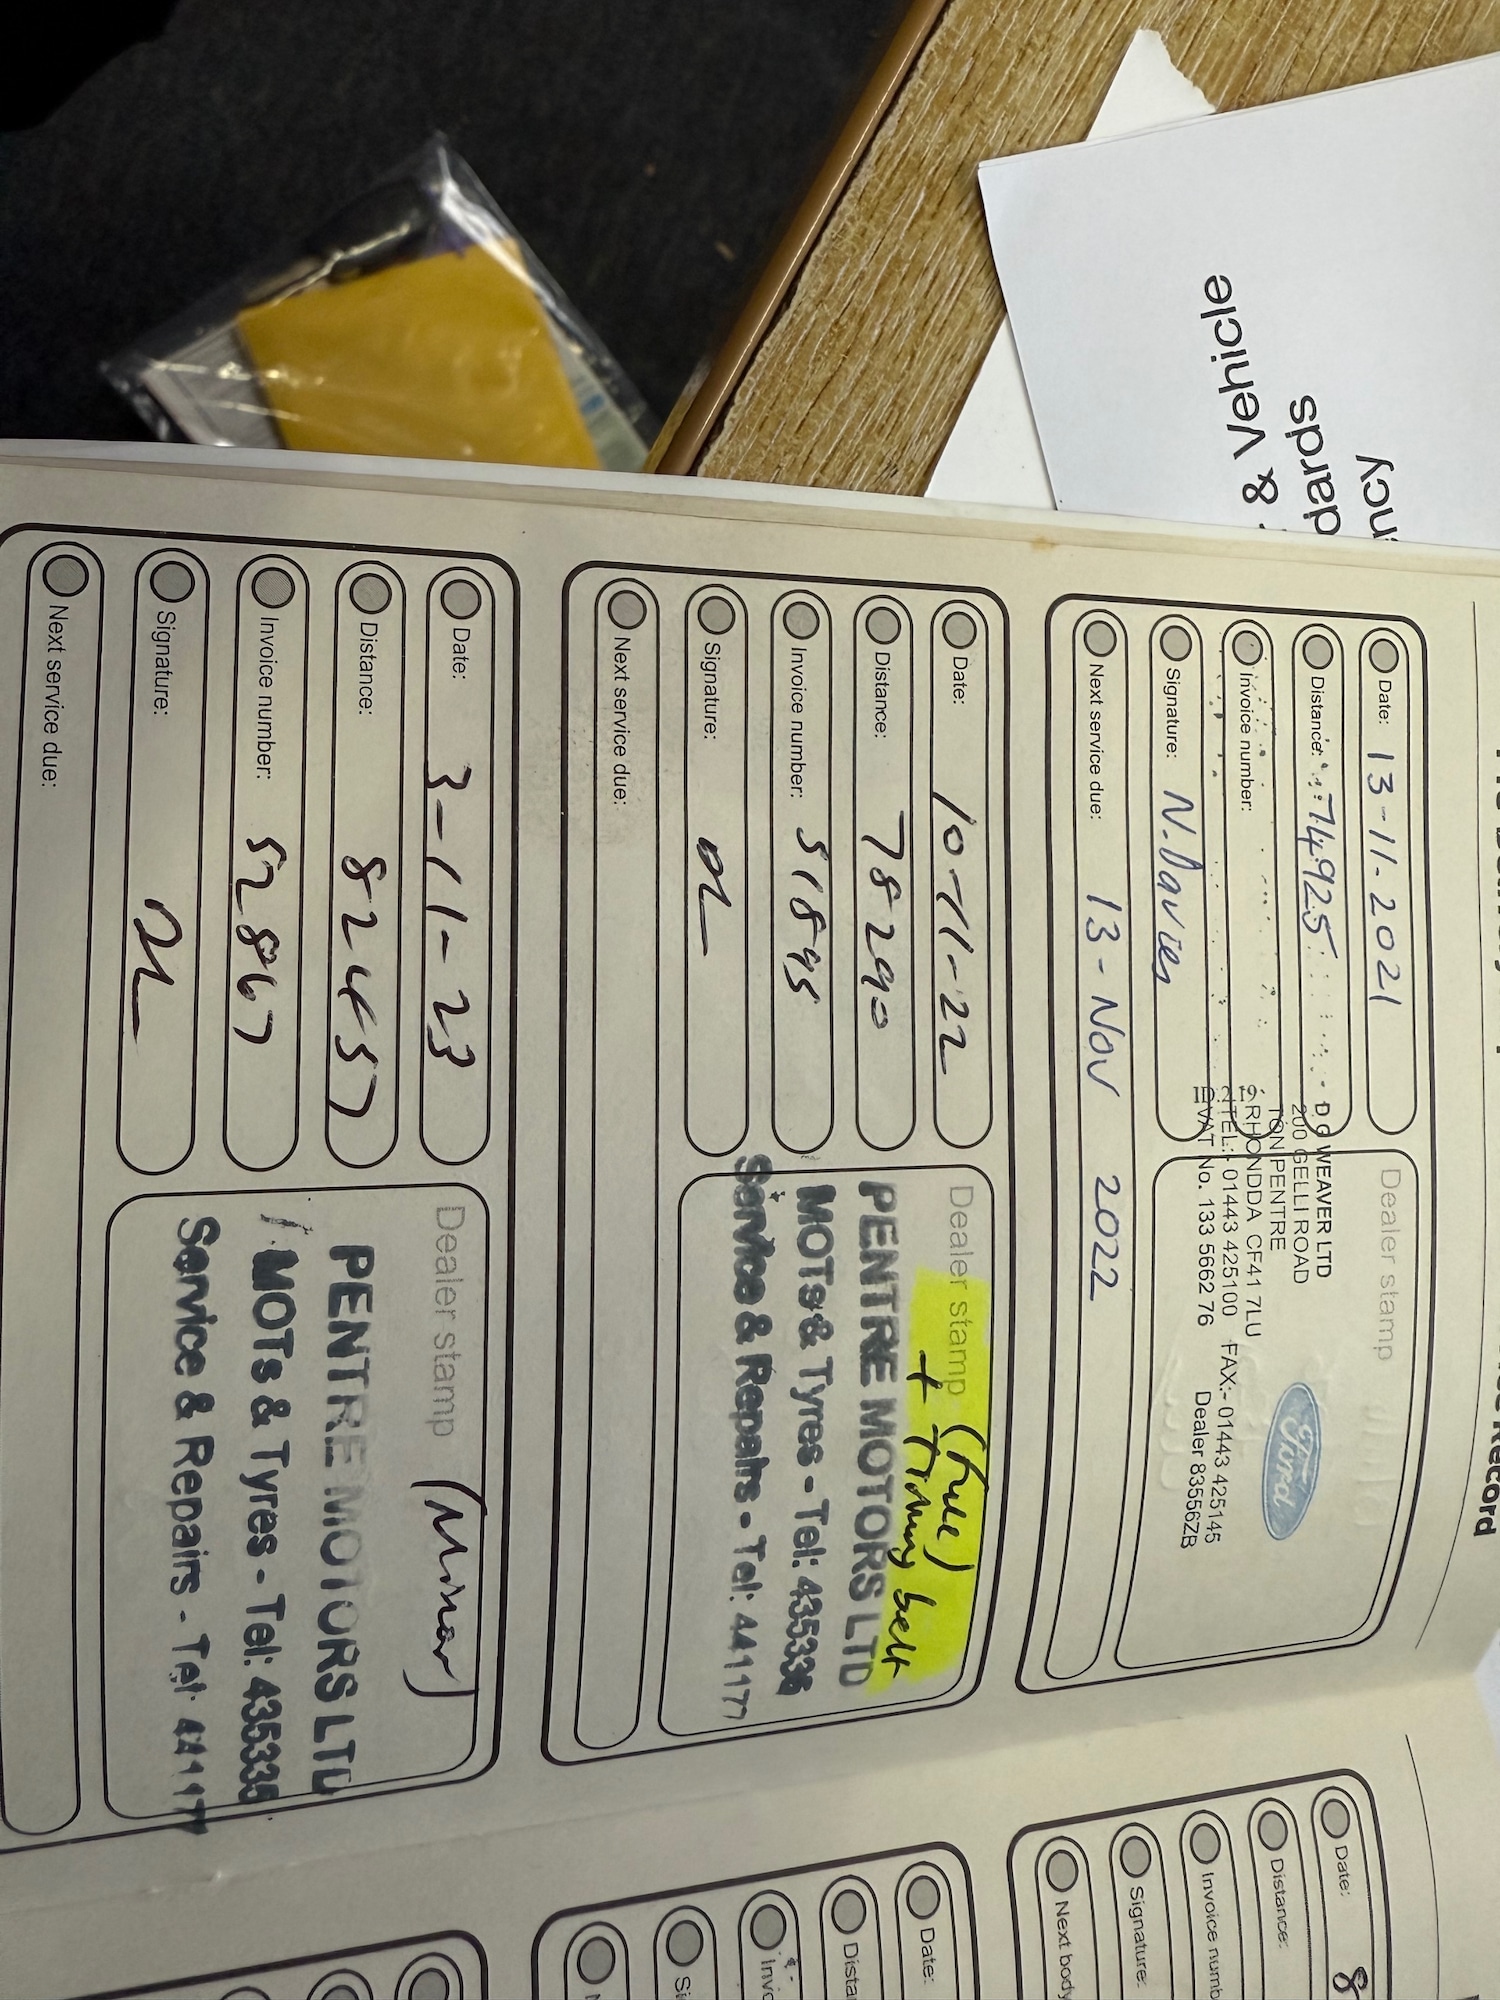 & Vehicle
dards
ncy
Record
Date: 13-11-2021
Distance: 74925
Invoice number:
Signature: N. Davies
Next service due: 13-Nov 2022
Dealer stamp
D G WEAVER LTD
200 GELLI ROAD
TON PENTRE
RHONDDA CF41 7LU
TEL:- 01443 425100 FAX:- 01443 425145
VAT No. 133 5662 76 Dealer 83556ZB
Ford
Date: 10-11-22
Distance: 78290
Invoice number: 51895
Signature:
Next service due:
Dealer stamp (full)
+ Timing belt
PENTRE MOTORS LTD
MOTs & Tyres - Tel: 435336
Service & Repairs - Tel: 441177
Date: 3-11-23
Distance: 82457
Invoice number: 52867
Signature:
Next service due:
Dealer stamp (Minor)
PENTRE MOTORS LTD
MOTs & Tyres - Tel: 435336
Service & Repairs - Tel: 441177
Date: 8
Distance:
Invoice numb
Signature:
Next body
Date:
Dista
Invo
Si
N